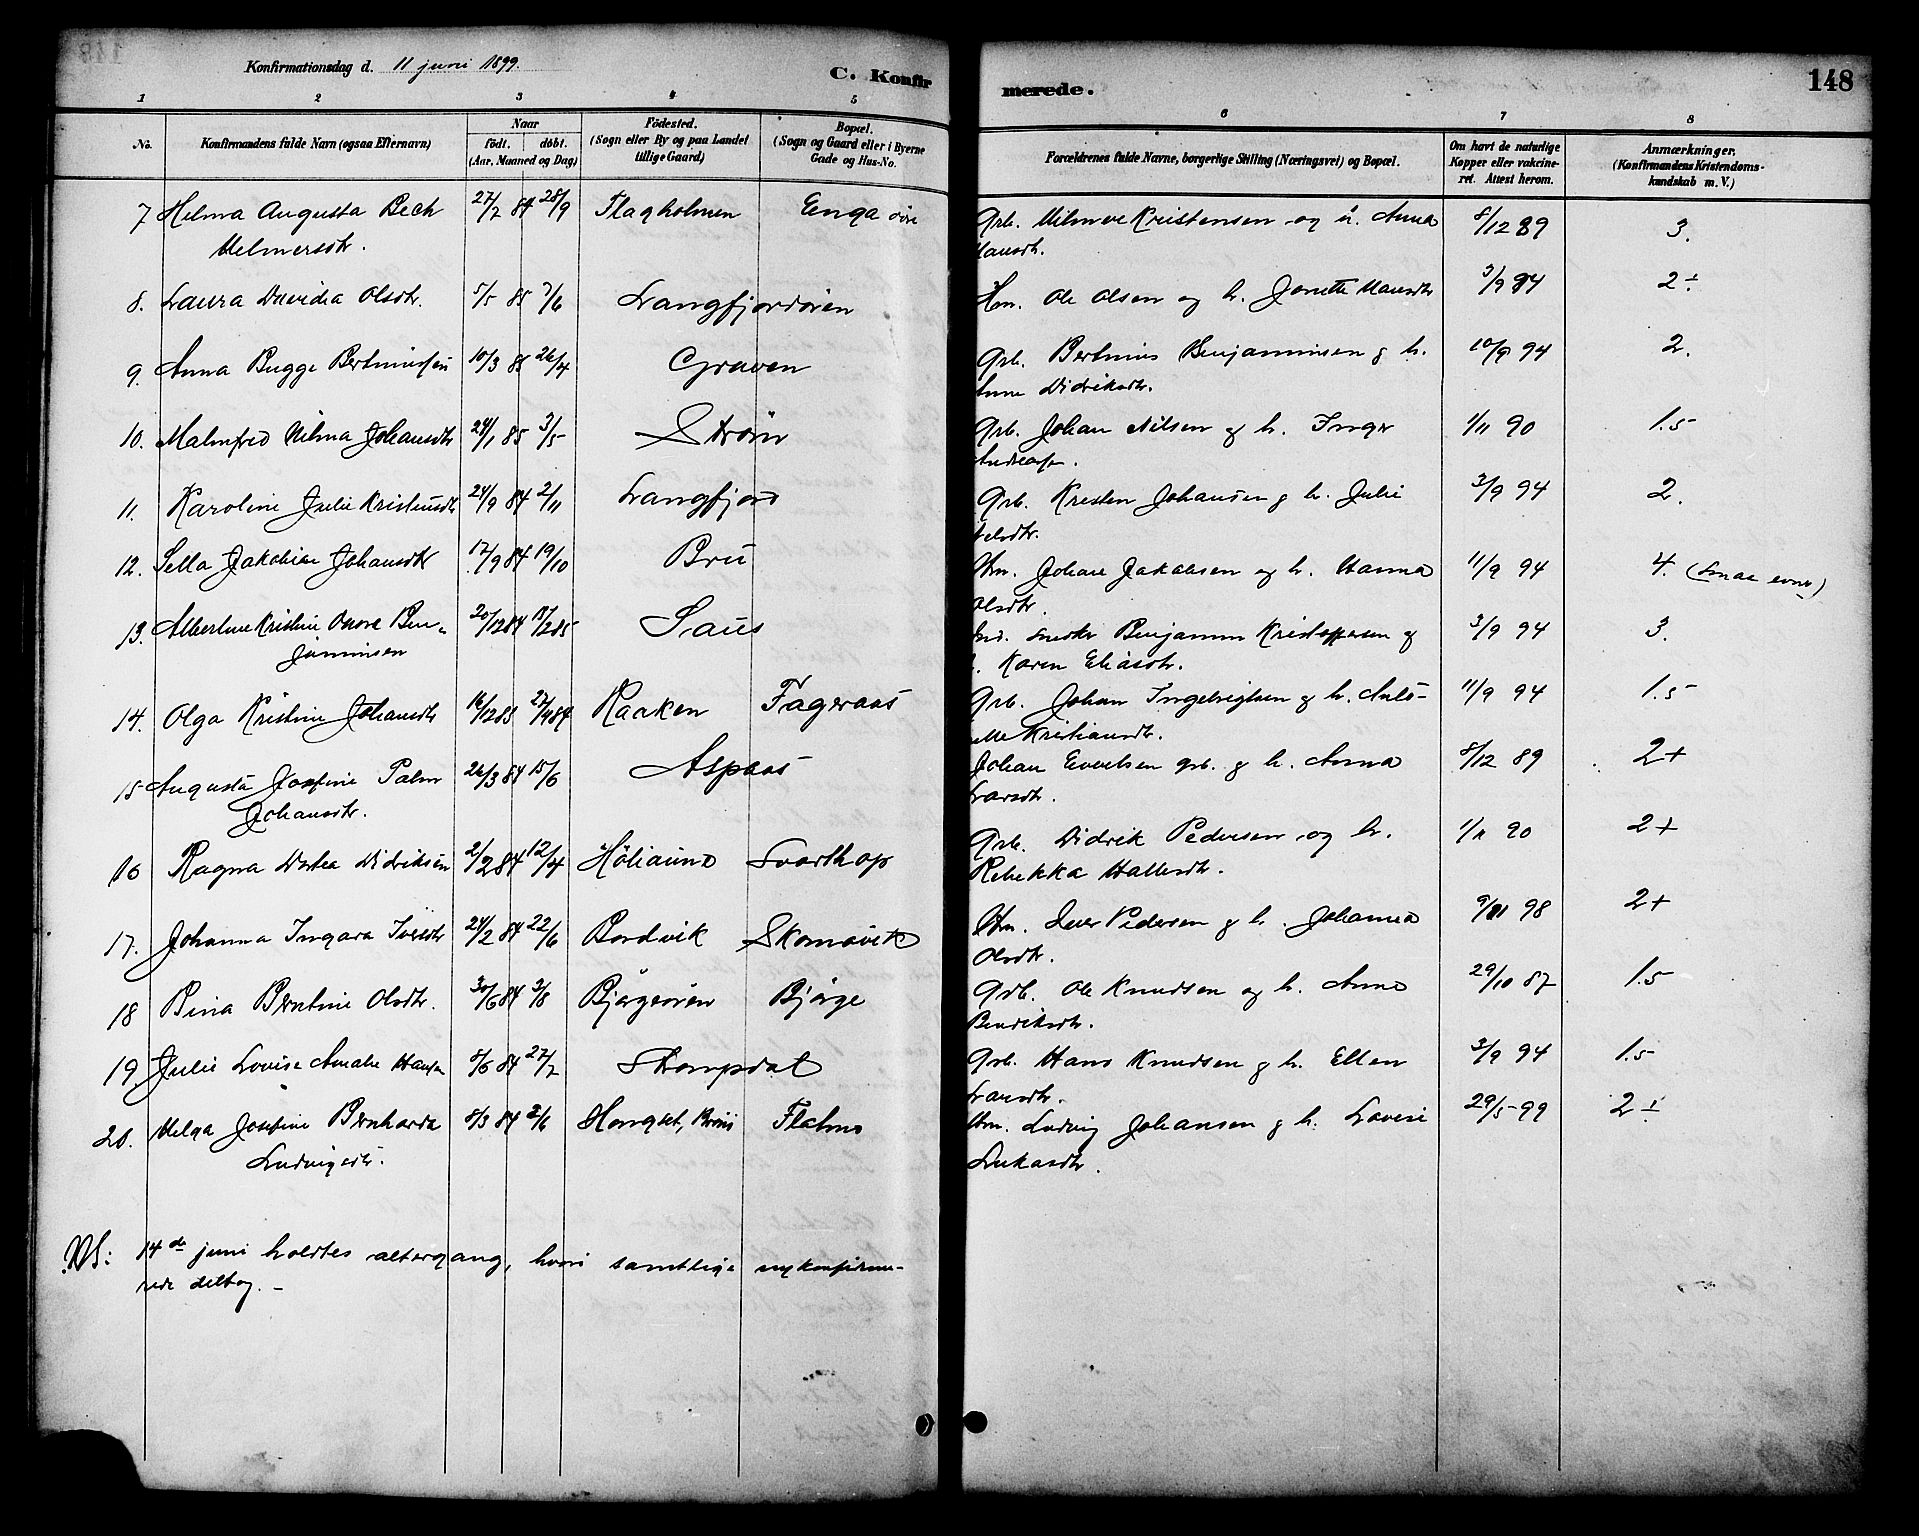 Konfirmationsdag d. 11 juni 1899.
C. Konfir
merede.
148
1 2 3 4 5 6 7 8
No.
Konfirmandens fulde Navn (ogsaa Efternavn)
Naar
født. døbt.
(Aar, Maaned og Dag)
Fødested.
(Sogn eller By og paa Landet
tillige Gaard)
Bopæl.
(Sogn og Gaard eller i Byerne
Gade og Hus-No.
Forældrenes fulde Navne, borgerlige Stilling (Næringsvei) og Bopæl.
Om havt de naturlige
Kopper eller vakcine-
ret. Attest herom.
Anmærkninger,
(Konfirmandens Kristendoms-
kundskab m. V.)
7 Helma Augusta Bech 27/7 84 28/9 Flagholmen Enga Grb. Hilmer Kristensen og h. Anna 8/12 89 3.
Helmersdtr. Hansdtr.
8. Laura Davida Olsdtr. 5/5 85 7/6 Langfjordøren Hm. Ole Olsen og h. Jonette Hansdtr 3/9 94 2÷
9. Anna Bugge Bertinussen 10/3 85 26/4 Graven Grb. Bertinus Benjaminsen g h. 10/9 94 2.
Anne Didriksdtr.
10. Malmfred Hilma Johansdtr 24/1 85 3/5 Strøm Grb. Johan Nilsen og h. Inger 1/11 90 1.5
11. Karoline Julie Kristensdtr 24/9 84 2/11 Langfjord Grb. Kristen Johansen g h. Julie 3/9 94 2.
12. Sella Jakobine Johansdtr 17/9 84 19/10 Bru Hm. Johan Jakobsen og h. Hanna 11/9 94 4. (smaa evner)
Olsdtr.
13. Albertine Kristine Onora Ben- 20/12 84 15/2 85 Saus Ind. snedker Benjamin Kristoffersen g 3/9 94 3.
jaminsen h. Karen Eliasdtr.
14. Olga Kristine Johansdtr 16/12 83 27/4 84 Kaaken Fageraas Grb. Johan Ingebrigtsen g h. Anto- 11/9 94 1.5
nette Kristiansdtr.
15 Augusta Josefine Palm 26/3 84 15/6 Aspaas Johan Evertsen grb. g h. Anna 8/12 89 2+
Johansdtr. Larsdtr.
16 Ragna Dortea Didriksen 2/2 84 12/4 Høliaund Svarthop Grb. Didrik Pedersen og h. 1/11 90 2+
Rebekka Hallesdtr.
17. Johanna Ingara Iversdtr 24/2 84 22/6 Bordvik Skomovik Hm. Iver Pedersen g h. Johanna 9/11 98 2+
Olsdtr.
18 Bina Berntine Olsdtr. 30/6 84 3/8 Bjørgeøren Bjørge Grb. Ole Knudsen og h. Anne 29/10 87 1.5
Bendiksdtr.
19. Julie Lovise Amalie Hansen 8/6 84 27/7 Skompdal Grb. Hans Knudsen g h. Ellen 3/9 94 1.5
Larsdtr.
20. Helga Josefine Bernharda 8/3 84 2/6 Hongset, Brøn Flatmo Hm. Ludvig Johansen g h. Lovise 29/5 99 2±
Ludvigsdtr. Lukasdtr.
NS: 14de juni holdtes altergang, hvori samtlige nykonfirme-
rede deltog. –